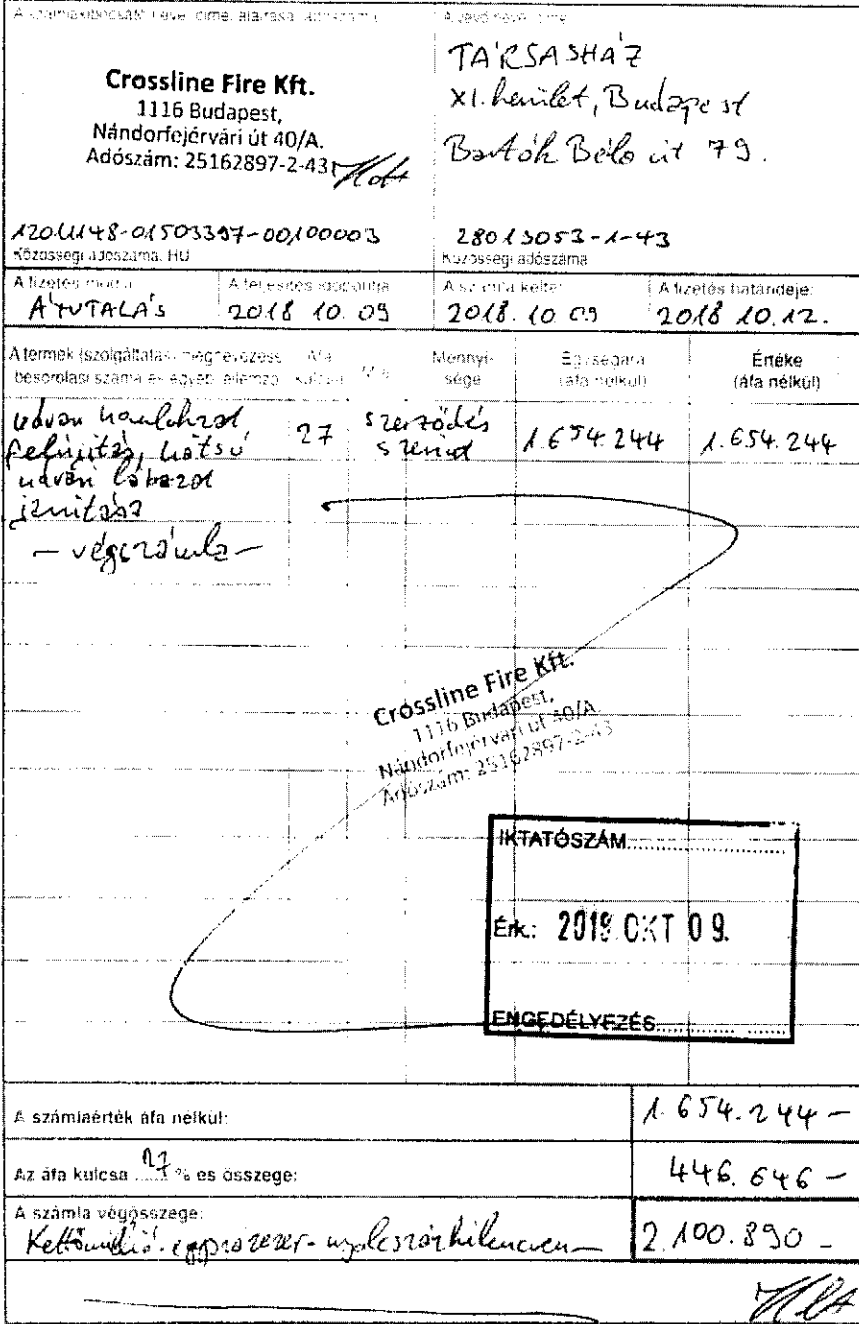 A számlakibocsátó neve, címe, aláírása, adószáma
Crossline Fire Kft.
1116 Budapest,
Nándorfejérvári út 40/A.
Adószám: 25162897-2-43
A vevő neve, címe
TÁRSASHÁZ
XI. kerület, Budapest
Bartók Béla út 79.
12011148-01503397-00100003
Közösségi adószáma: HU
28013053-1-43
Közösségi adószáma
A fizetés módja
ÁTUTALÁS
A teljesítés időpontja
2018 10. 09
A számla kelte:
2018. 10 09
A fizetés határideje:
2018 10.12.
A termék (szolgáltatás) megnevezése
besorolási száma és egyéb jellemző
Áfa
kulcsa
M.e.
Mennyi-
sége
Egységára
(áfa nélkül)
Értéke
(áfa nélkül)
udvari homlokzat
felújítás, hátsó
udvari lábazat
javítása
- végszámla -
27
szerződés
szerint
1.654.244
1.654.244
Crossline Fire Kft.
1116 Budapest,
Nándorfejérvári út 40/A.
Adószám: 25162897-2-43
IKTATÓSZÁM
Érk.: 2018 OKT 09.
ENGEDÉLYEZÉS
A számlaérték áfa nélkül:
1.654.244-
Az áfa kulcsa 27 % és összege:
446.646-
A számla végösszege:
Kettőmillió-egyszázezer-nyolcszázkilencven-
2.100.890-